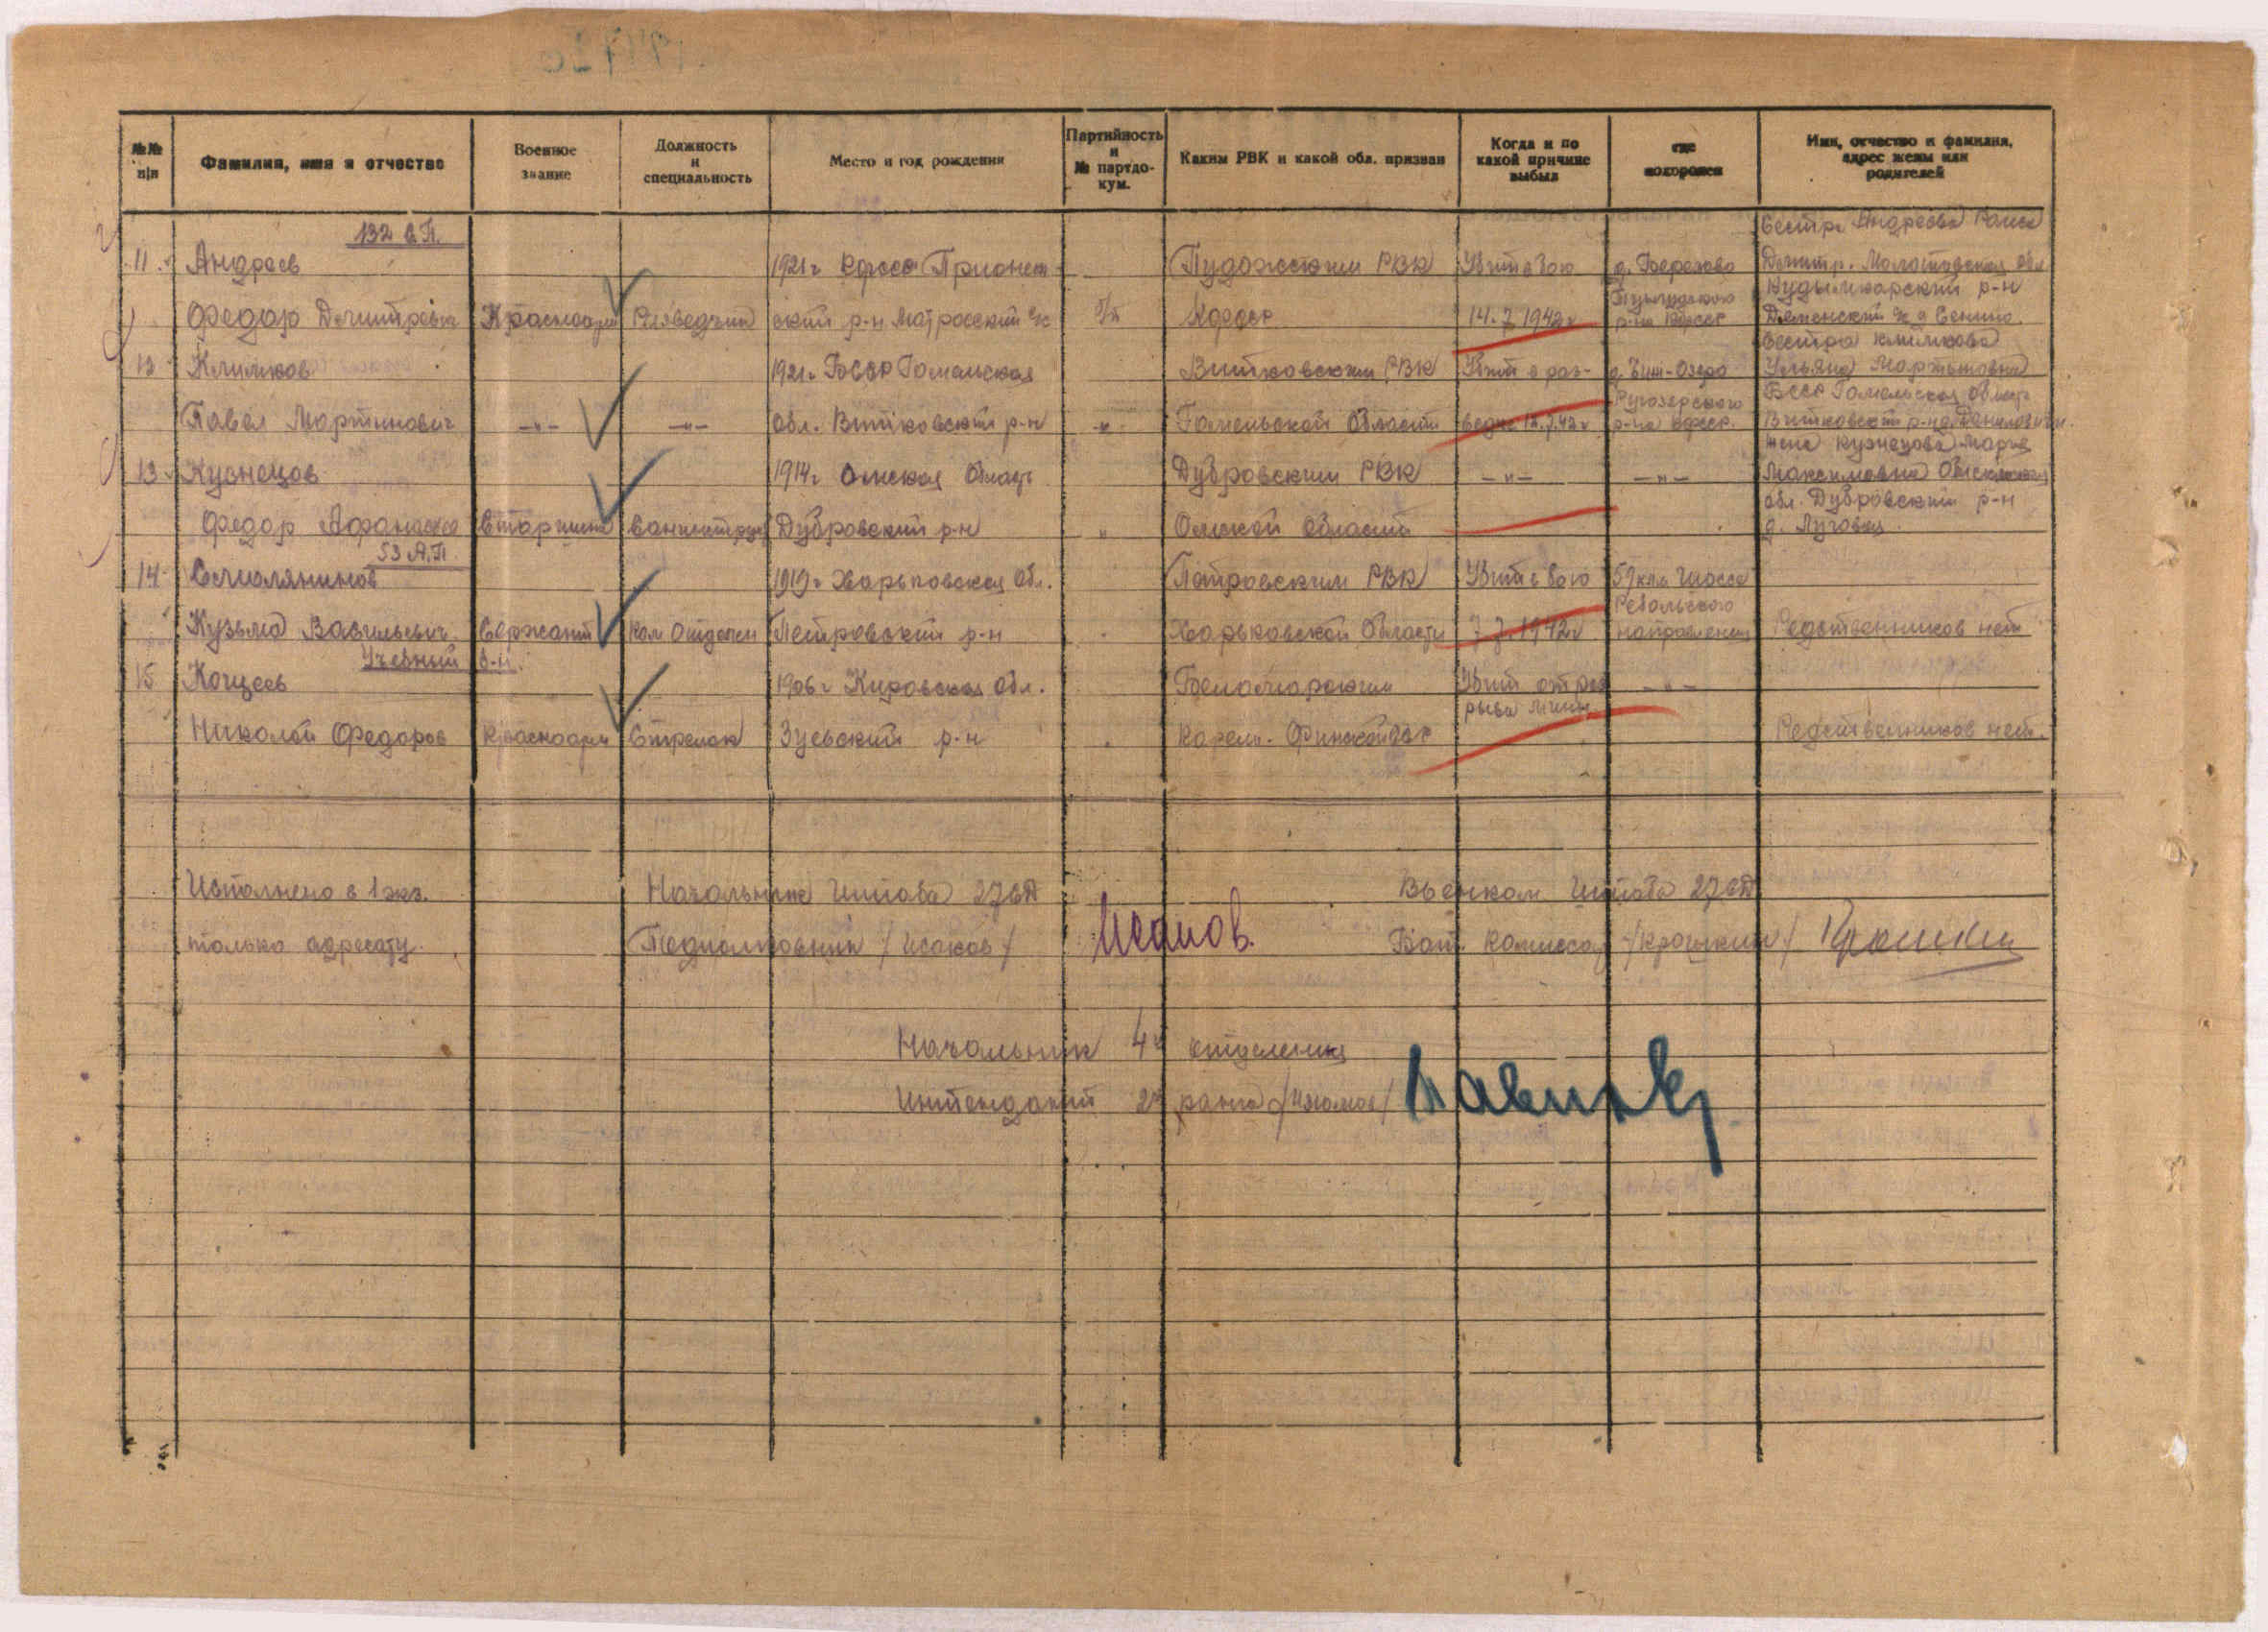 №№ п|п
Фамилия, имя и отчество
Военное звание
Должность и специальность
Место и год рождения
Партийность и № партдокум.
Каким РВК и какой обл. призван
Когда и по какой причине выбыл
где похоронен
Имя, отчество и фамилия, адрес жены или родителей
132 С.П.
Сестра Андреева Раиса
11. Андреев 1921 г КФССР Прионеж Пудожским РВК Убит в бою д. Березово Дмитр. Молотовская обл
Кудымкарский р-н
Федор Дмитревич Красноарм Разведчик ский р-н Матросский с/с б/п КФССР 14.7.1942 г р-на КФССР
Сестра Климкова
12 Климков 1921 г. БССР Гомельская Витковским РВК Убит в раз- Ульяна Мартыновна
БССР Гомельская область
Павел Мартинович -"- -"- обл. Витковский р-н -"- Гомельской области ведке 12.7.42 г р-на КФССР. Витковский р-н д. Даниловичи
Ругозерского
жена Кузнецова Марья
13 Кузнецов 1914 г Омская область Дубровским РВК -"- -"- Максимовна Омская
обл. Дубровский р-н
Федор Афанасье Старшина Санинструк Дубровский р-н " Омской области д. Луговая.
53 А.П.
14 Смолянинов 1919 г Харьковская обл. Петровским РВК Убит в бою 59 клм. шоссе
Ребольского
Кузьма Васильевич Сержант Ком отделен Петровский р-н Харьковской области 7.7.1942 г направления Родственников нет
Учебный б-н.
15 Кощеев 1906 г Кировская обл. Беломорским Убит от раз -"-
рыва мины
Николай Федоров Красноарм Стрелок Зуевский р-н Карело-Финской ССР Родственников нет.
Исполнено в 1 экз. Начальник Штаба 27 СД Военком Штаба 27 СД
только адресату. Подполковник /Исаков/ Исаков. Бат. комиссар /Крошкин/ Крошкин
Начальник 4го отделения
Интендант 2го ранга